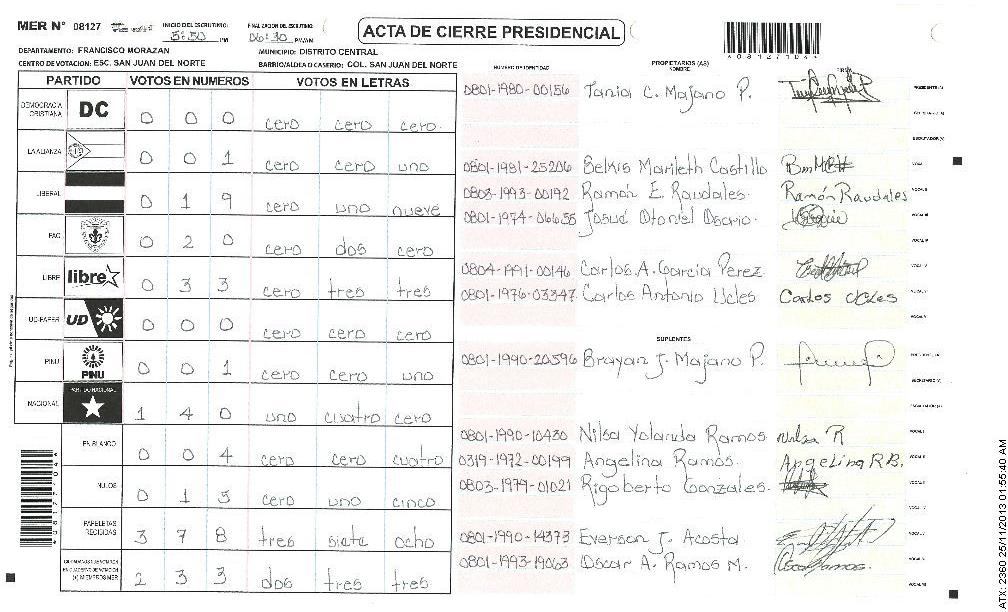 MER N° 08127 INICIO DEL ESCRUTINIO: 5:50 PM FINALIZACION DEL ESCRUTINIO: 06:30 PM/AM ACTA DE CIERRE PRESIDENCIAL
DEPARTAMENTO: FRANCISCO MORAZAN MUNICIPIO: DISTRITO CENTRAL
CENTRO DE VOTACION: ESC. SAN JUAN DEL NORTE BARRIO/ALDEA O CASERIO: COL. SAN JUAN DEL NORTE
NÚMERO DE IDENTIDAD PROPIETARIOS (AS) NOMBRE FIRMA
PARTIDO VOTOS EN NUMEROS VOTOS EN LETRAS
DEMOCRACIA CRISTIANA DC 0 0 0 cero cero cero
LA ALIANZA 0 0 1 cero cero uno
LIBERAL 0 1 9 cero uno nueve
PAC 0 2 0 cero dos cero
LIBRE libre 0 3 3 cero tres tres
UD-FAPER UD 0 0 0 cero cero cero
PINU PINU 0 0 1 cero cero uno
NACIONAL PARTIDO NACIONAL 1 4 0 uno cuatro cero
EN BLANCO 0 0 4 cero cero cuatro
NULOS 0 1 5 cero uno cinco
PAPELETAS RECIBIDAS 3 7 8 tres siete ocho
CIUDADANOS QUE VOTARON EN CUADERNO DE VOTACION (+) MIEMPROS MER 2 3 3 dos tres tres
0801-1980-00156 Tania C. Majano P. PRESIDENTE (A)
0801-1981-25206 Belkis Marileth Castillo
0803-1993-00192 Ramón E. Raudales. Ramón Raudales
0801-1974-06635 Josué Otoniel Osorio.
0804-1991-00146 Carlos A. Garcia Perez
0801-1976-03347 Carlos Antonio Ucles Carlos Ucles
SUPLENTES
0801-1990-20596 Brayan J. Majano P.
0801-1990-10430 Nilsa Yolanda Ramos Nilsa R
0319-1972-00199 Angelina Ramos. Angelina R B.
0803-1979-01021 Rigoberto Gonzales.
0801-1990-14373 Everson J. Acosta
0801-1993-19063 Oscar A. Ramos M.
ATX: 2360 25/11/2013 01:55:40 AM